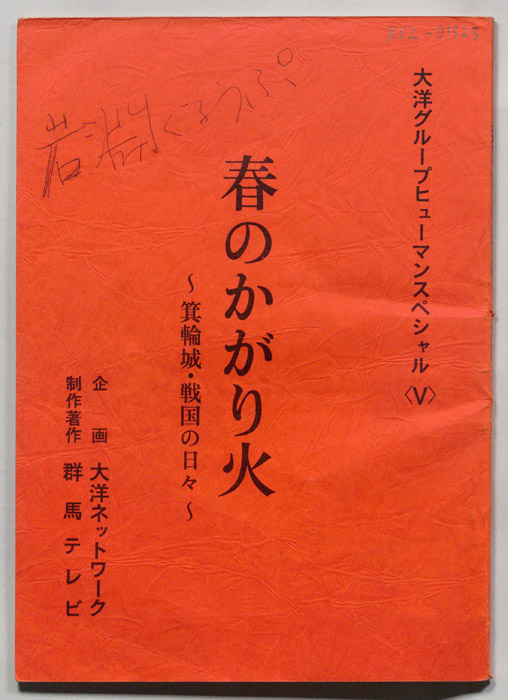 大洋グループヒューマンスペシャル〈Ⅴ〉
岩渕ぐるうぷ
春のかがり火
～箕輪城・戦国の日々～
企画 大洋ネットワーク
制作著作 群馬テレビ